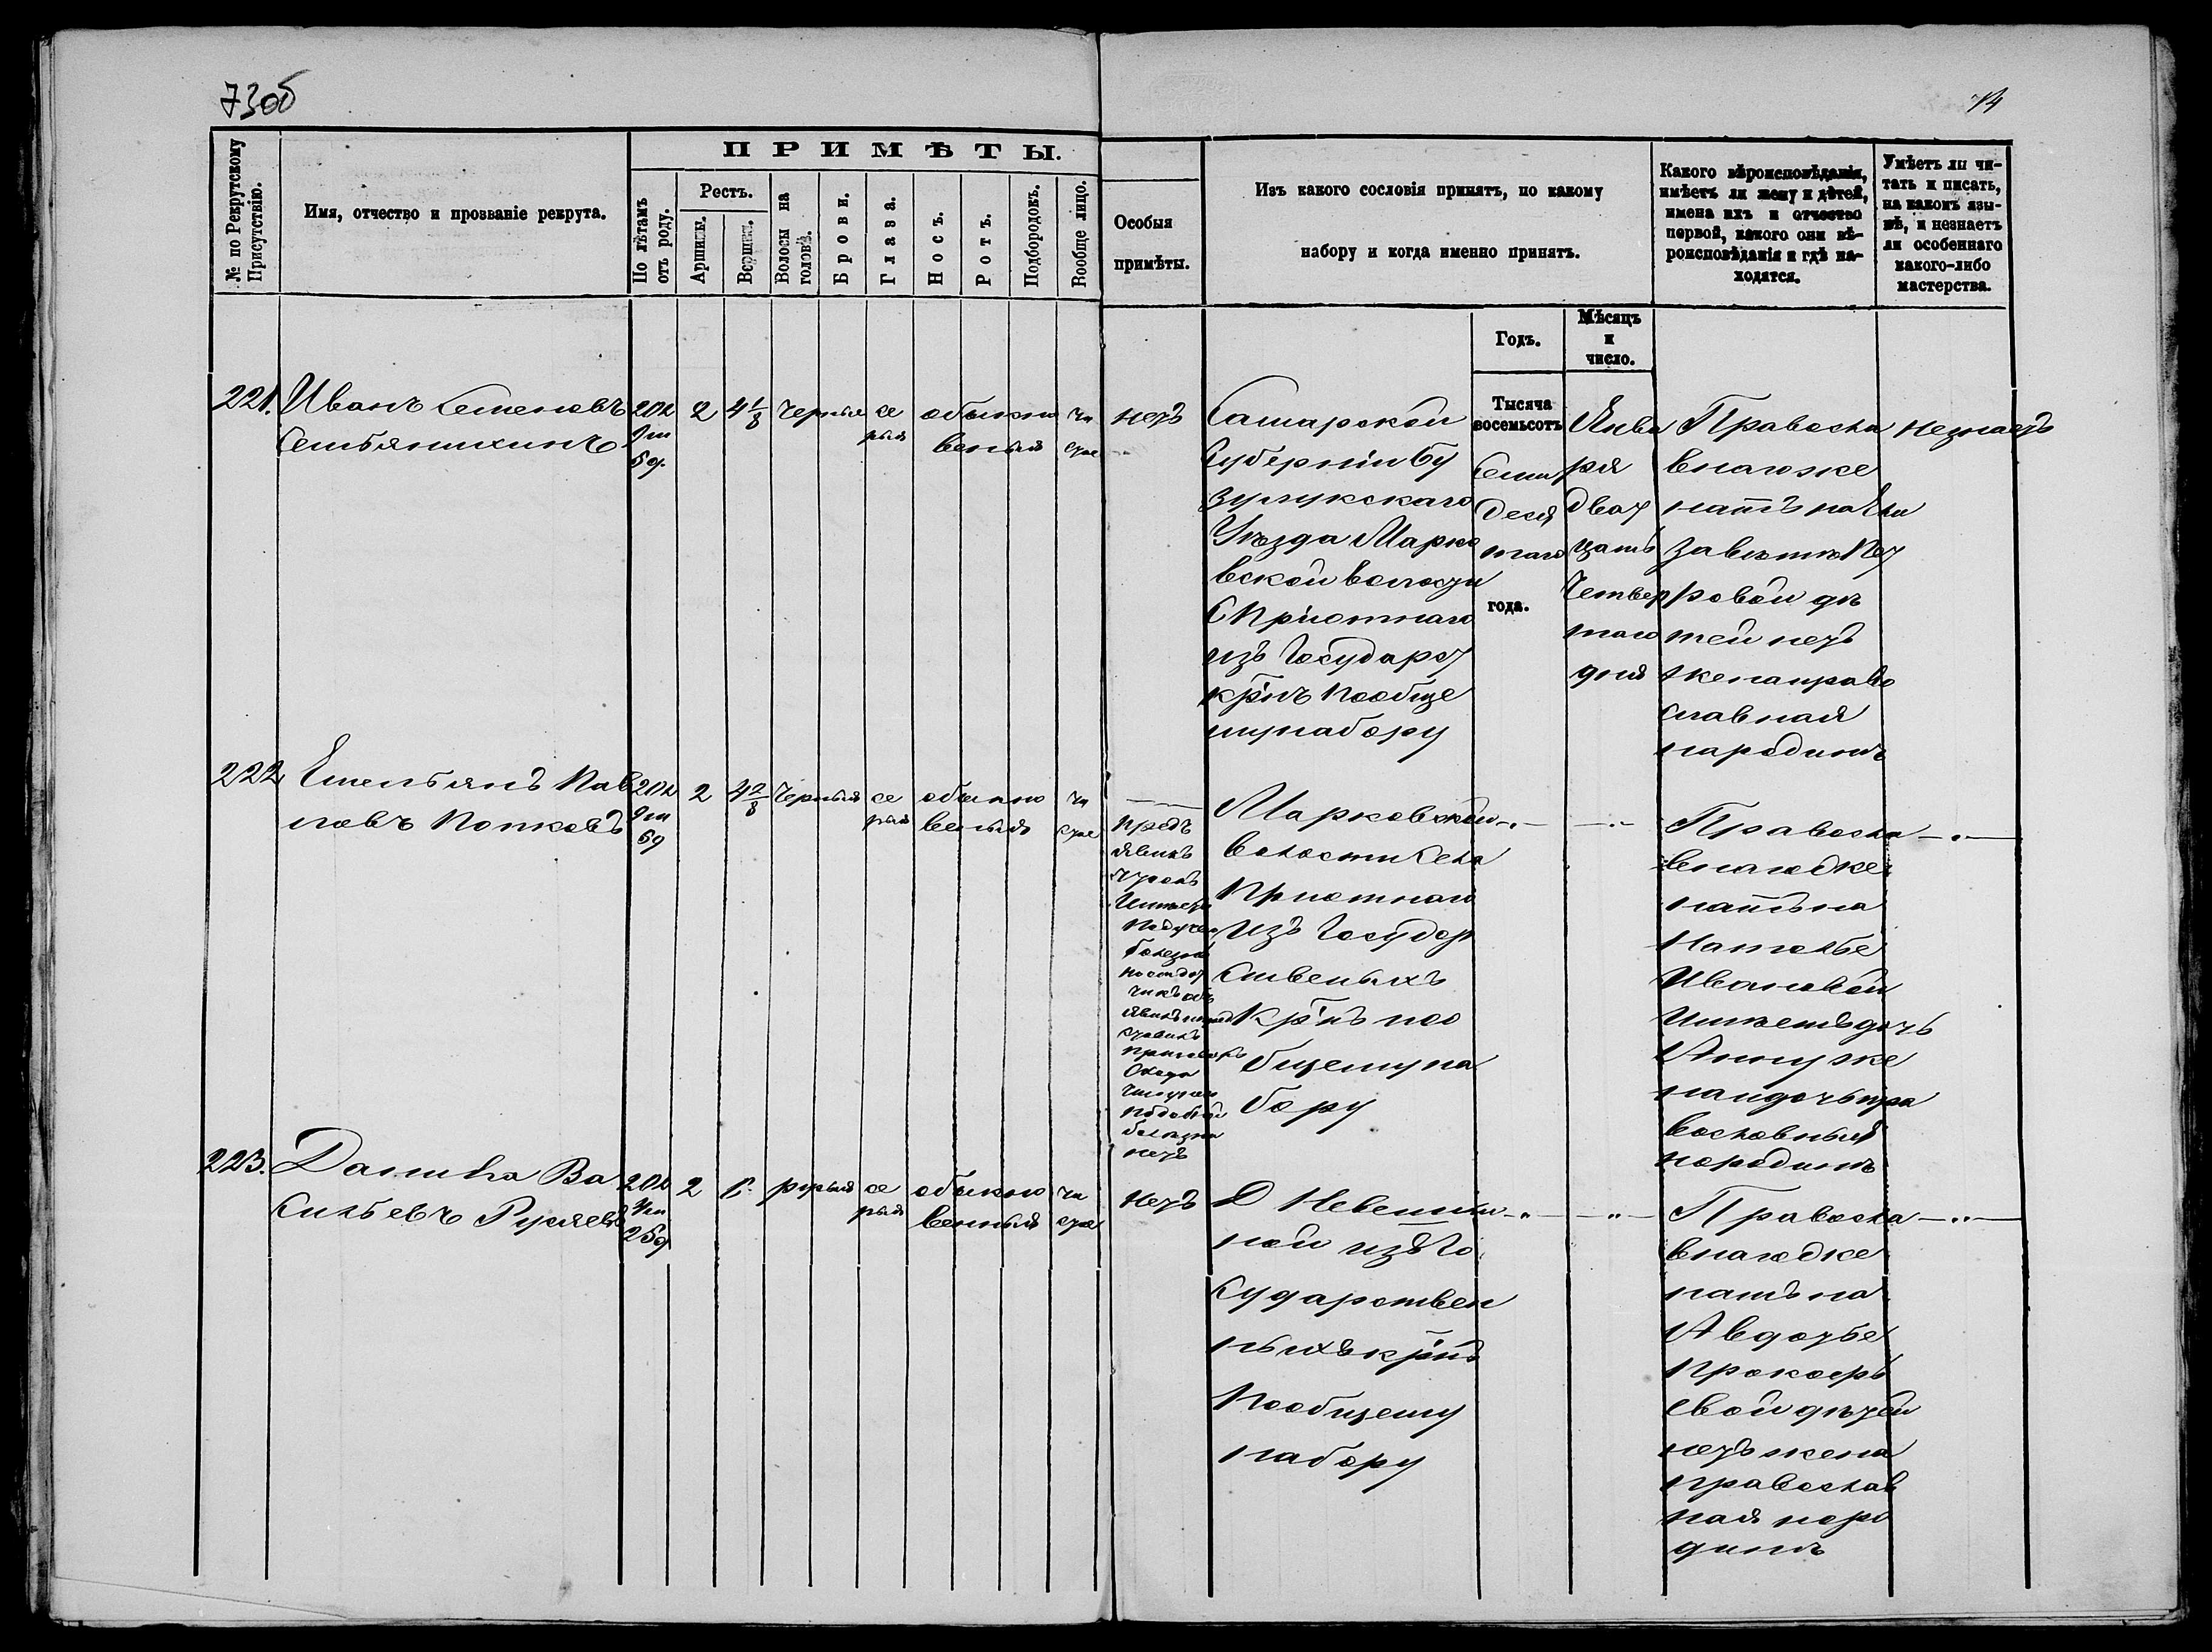 73об
74
№ по Рекрутскому Присутствію.
Имя, отчество и прозваніе рекрута.
ПРИМѢТЫ.
По лѣтамъ отъ роду.
Ростъ.
Аршины.
Вершки.
Волосы на головѣ.
Брови.
Глаза.
Носъ.
Ротъ.
Подбородокъ.
Вообще лицо.
Особыя
примѣты.
Изъ какого сословія принятъ, по какому
набору и когда именно принятъ.
Какого вѣроисповѣданія,
имѣетъ ли жену и дѣтей,
имена ихъ и отчество
первой, какого они вѣ-
роисповѣданія и гдѣ на-
ходятся.
Умѣетъ ли чи-
тать и писать,
на какомъ язы-
кѣ, и незнаетъ
ли особеннаго
какого-либо
мастерства.
Годъ.
Мѣсяцъ
и
число.
221. Иванъ Семеновъ
Семьянихинъ
20л
5д.
2
4 1/8
Черныя
се
рыя
обыкно
веныя
чи
стое
нетъ
Самарской
Губерніи Бу
зулукскаго
Уѣзда Марко
вской волости
С Пріютнаго
изъ Государст
крнъ пообще
му набору
Тысяча
восемьсотъ
Семи
деся
таго
года.
Янва
ря
двад
цать
Четвер
таго
дня
Правосла
внаго же
натъ на Ели
заветѣ Пет
ровой дѣ
тей нетъ
жена право
славная
народинѣ
незнаетъ
222 Емельянъ Пав
ловъ Попковъ
20л
2
4 2/8
Черныя
се
рыя
обыкно
веныя
чи
стое
Предъ
явилъ
Имѣетъ
болезнь
нетъ
Марковской
волости Села
Пріютнаго
Изъ Государ
ственыхъ
Крнъ поо
бщему на
бору
—"—
—"—
Правосла
внагоже
натъ на
Наталье
Ивановой
имѣетъ дочь
Анну же
на и дочь пра
вославныя
народинѣ
—"—
223. Данила Ва
сильевъ Русяевъ
20л
25д
2
6
русыя
се
рыя
обыкно
венныя
чи
стое
Нетъ
Д Невежки
ной изъ Го
сударствен
ныхъ крнъ
Пообщему
набору
—"—
—"—
Правосла
внагоже
натъ на
Авдотье
Прокофь
евой дѣтей
нетъ жена
православ
ная наро
динѣ
—"—